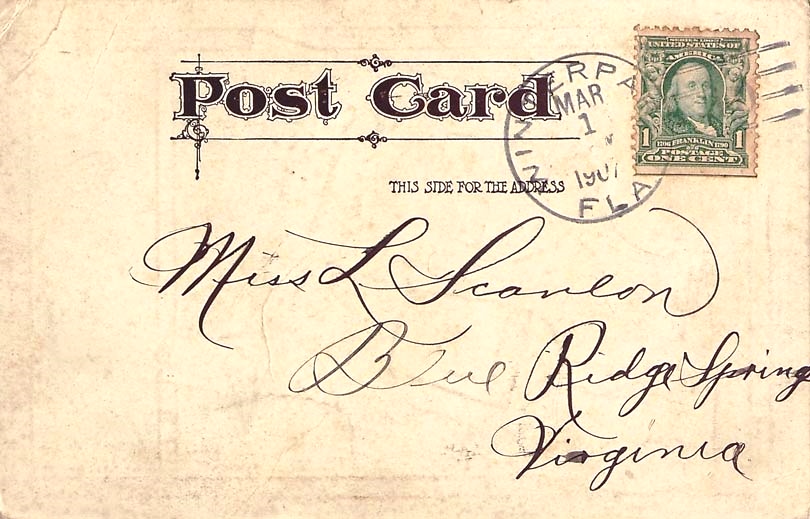 Post Card
THIS SIDE FOR THE ADDRESS
WINTERPA
FLA
MAR
1
1907
SERIES 1902
UNITED STATES OF
AMERICA
1 1706 FRANKLIN 1790 1
POSTAGE
ONE CENT
Miss L Scanlon
Blue Ridge Spring
Virginia